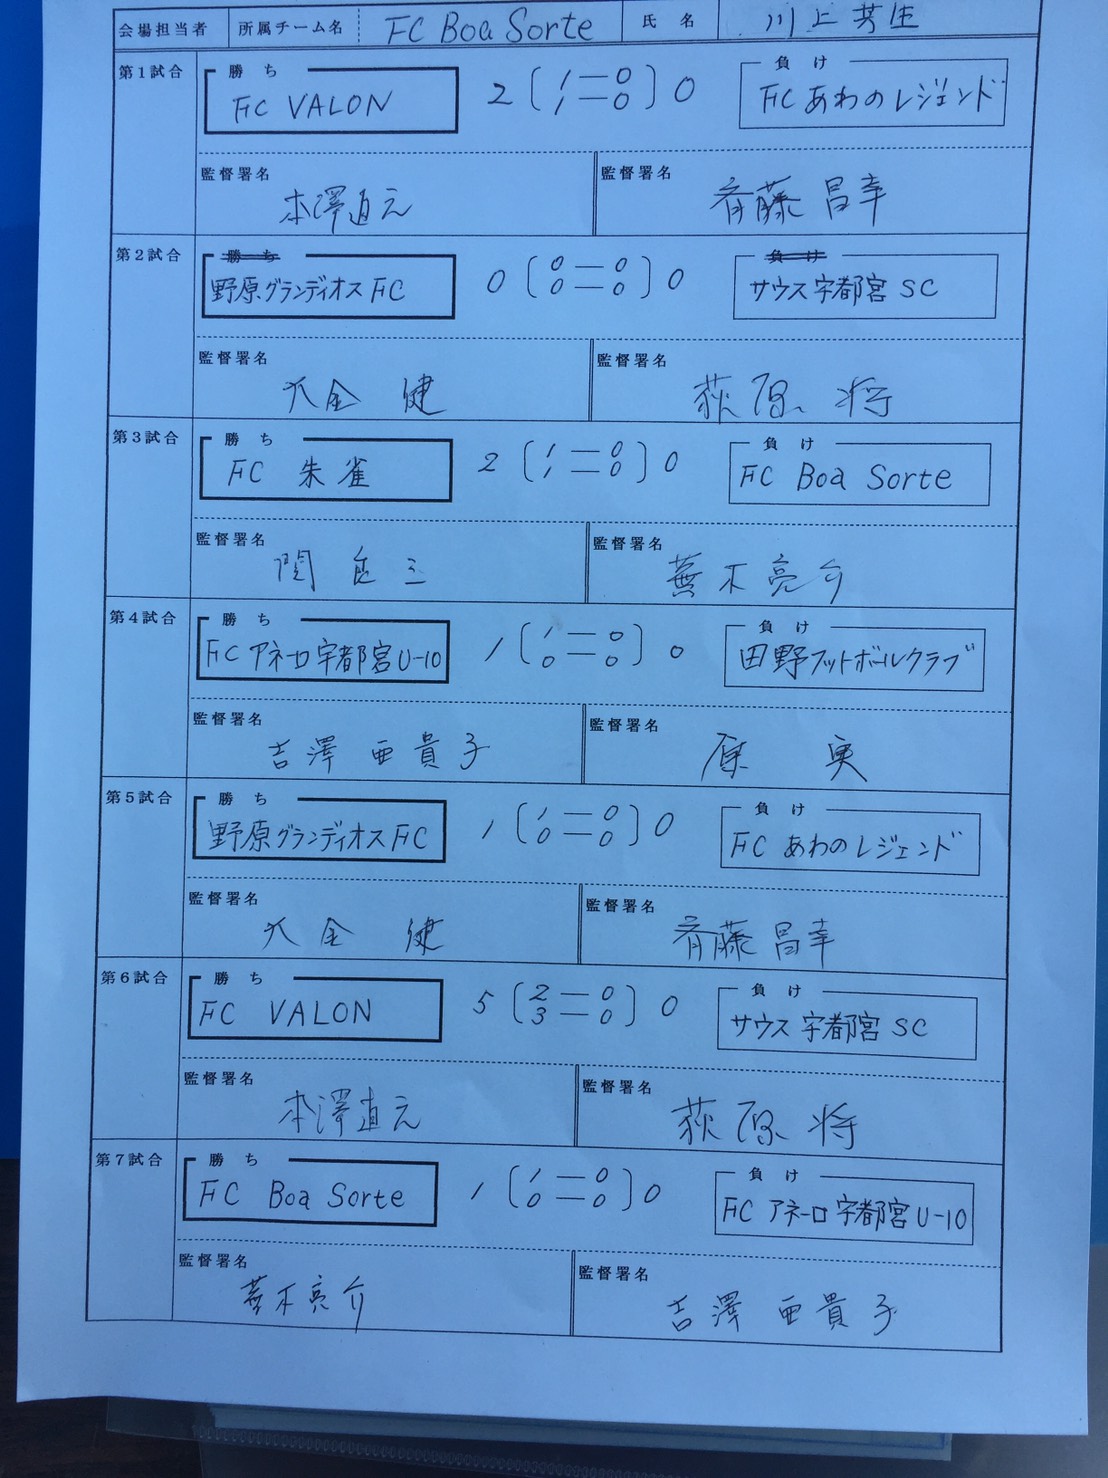 会場担当者 所属チーム名 FC Boa Sorte 氏名 川上芳生
第1試合 勝ち 負け
FC VALON 2 (1-0 1-0) 0 FCあわのレジェンド
監督署名 本澤直元 監督署名 斉藤昌幸
第2試合 勝ち 負け
野原グランディオスFC 0 (0-0 0-0) 0 サウス宇都宮SC
監督署名 大金 健 監督署名 荻原 将
第3試合 勝ち 負け
FC 朱雀 2 (1-0 1-0) 0 FC Boa Sorte
監督署名 監督署名 木亮介
第4試合 勝ち 負け
FCアネーロ宇都宮U-10 1 (1-0 0-0) 0 田野フットボールクラブ
監督署名 吉澤 亜貴子 監督署名 原 実
第5試合 勝ち 負け
野原グランディオスFC 1 (1-0 0-0) 0 FCあわのレジェンド
監督署名 大金 健 監督署名 斉藤昌幸
第6試合 勝ち 負け
FC VALON 5 (2-0 3-0) 0 サウス宇都宮SC
監督署名 本澤直元 監督署名 荻原 将
第7試合 勝ち 負け
FC Boa Sorte 1 (1-0 0-0) 0 FCアネーロ宇都宮U-10
監督署名 木亮介 監督署名 吉澤 亜貴子